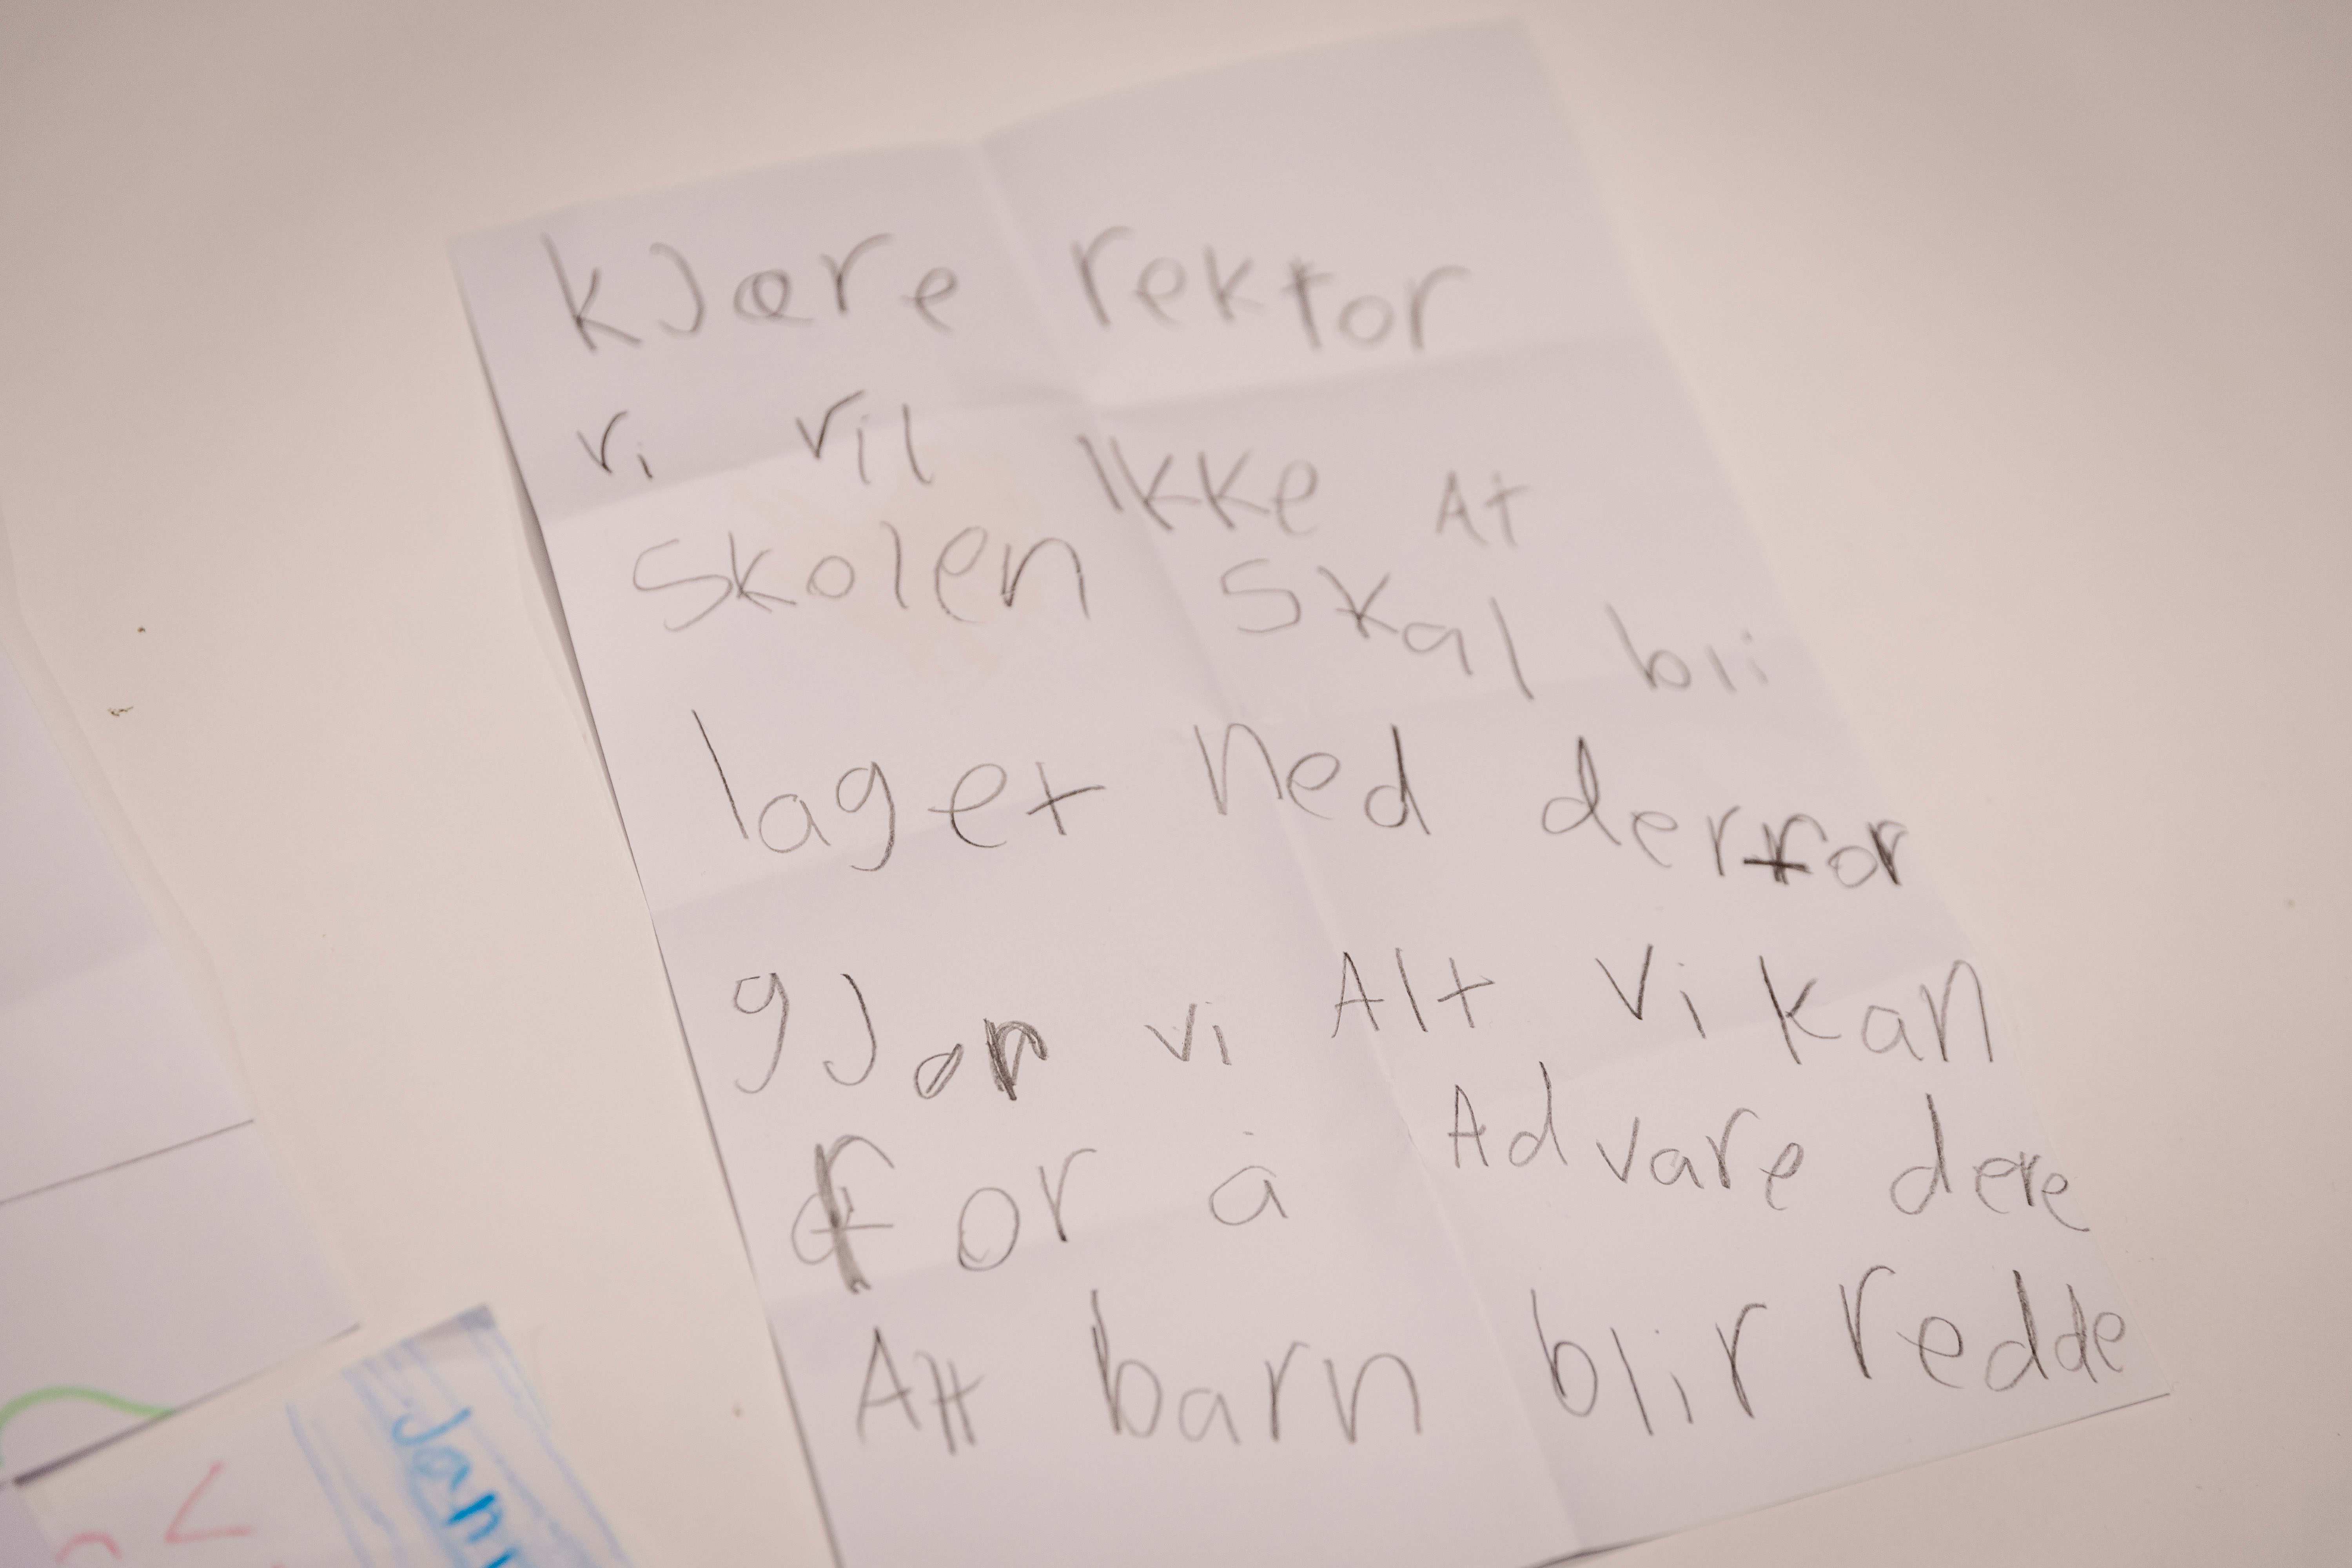 kJære rektor
vi vil ikke At
Skolen Skal bli
laget ned derfor
gJør vi Alt vi kan
for å Advare dere
Att barn blir redde